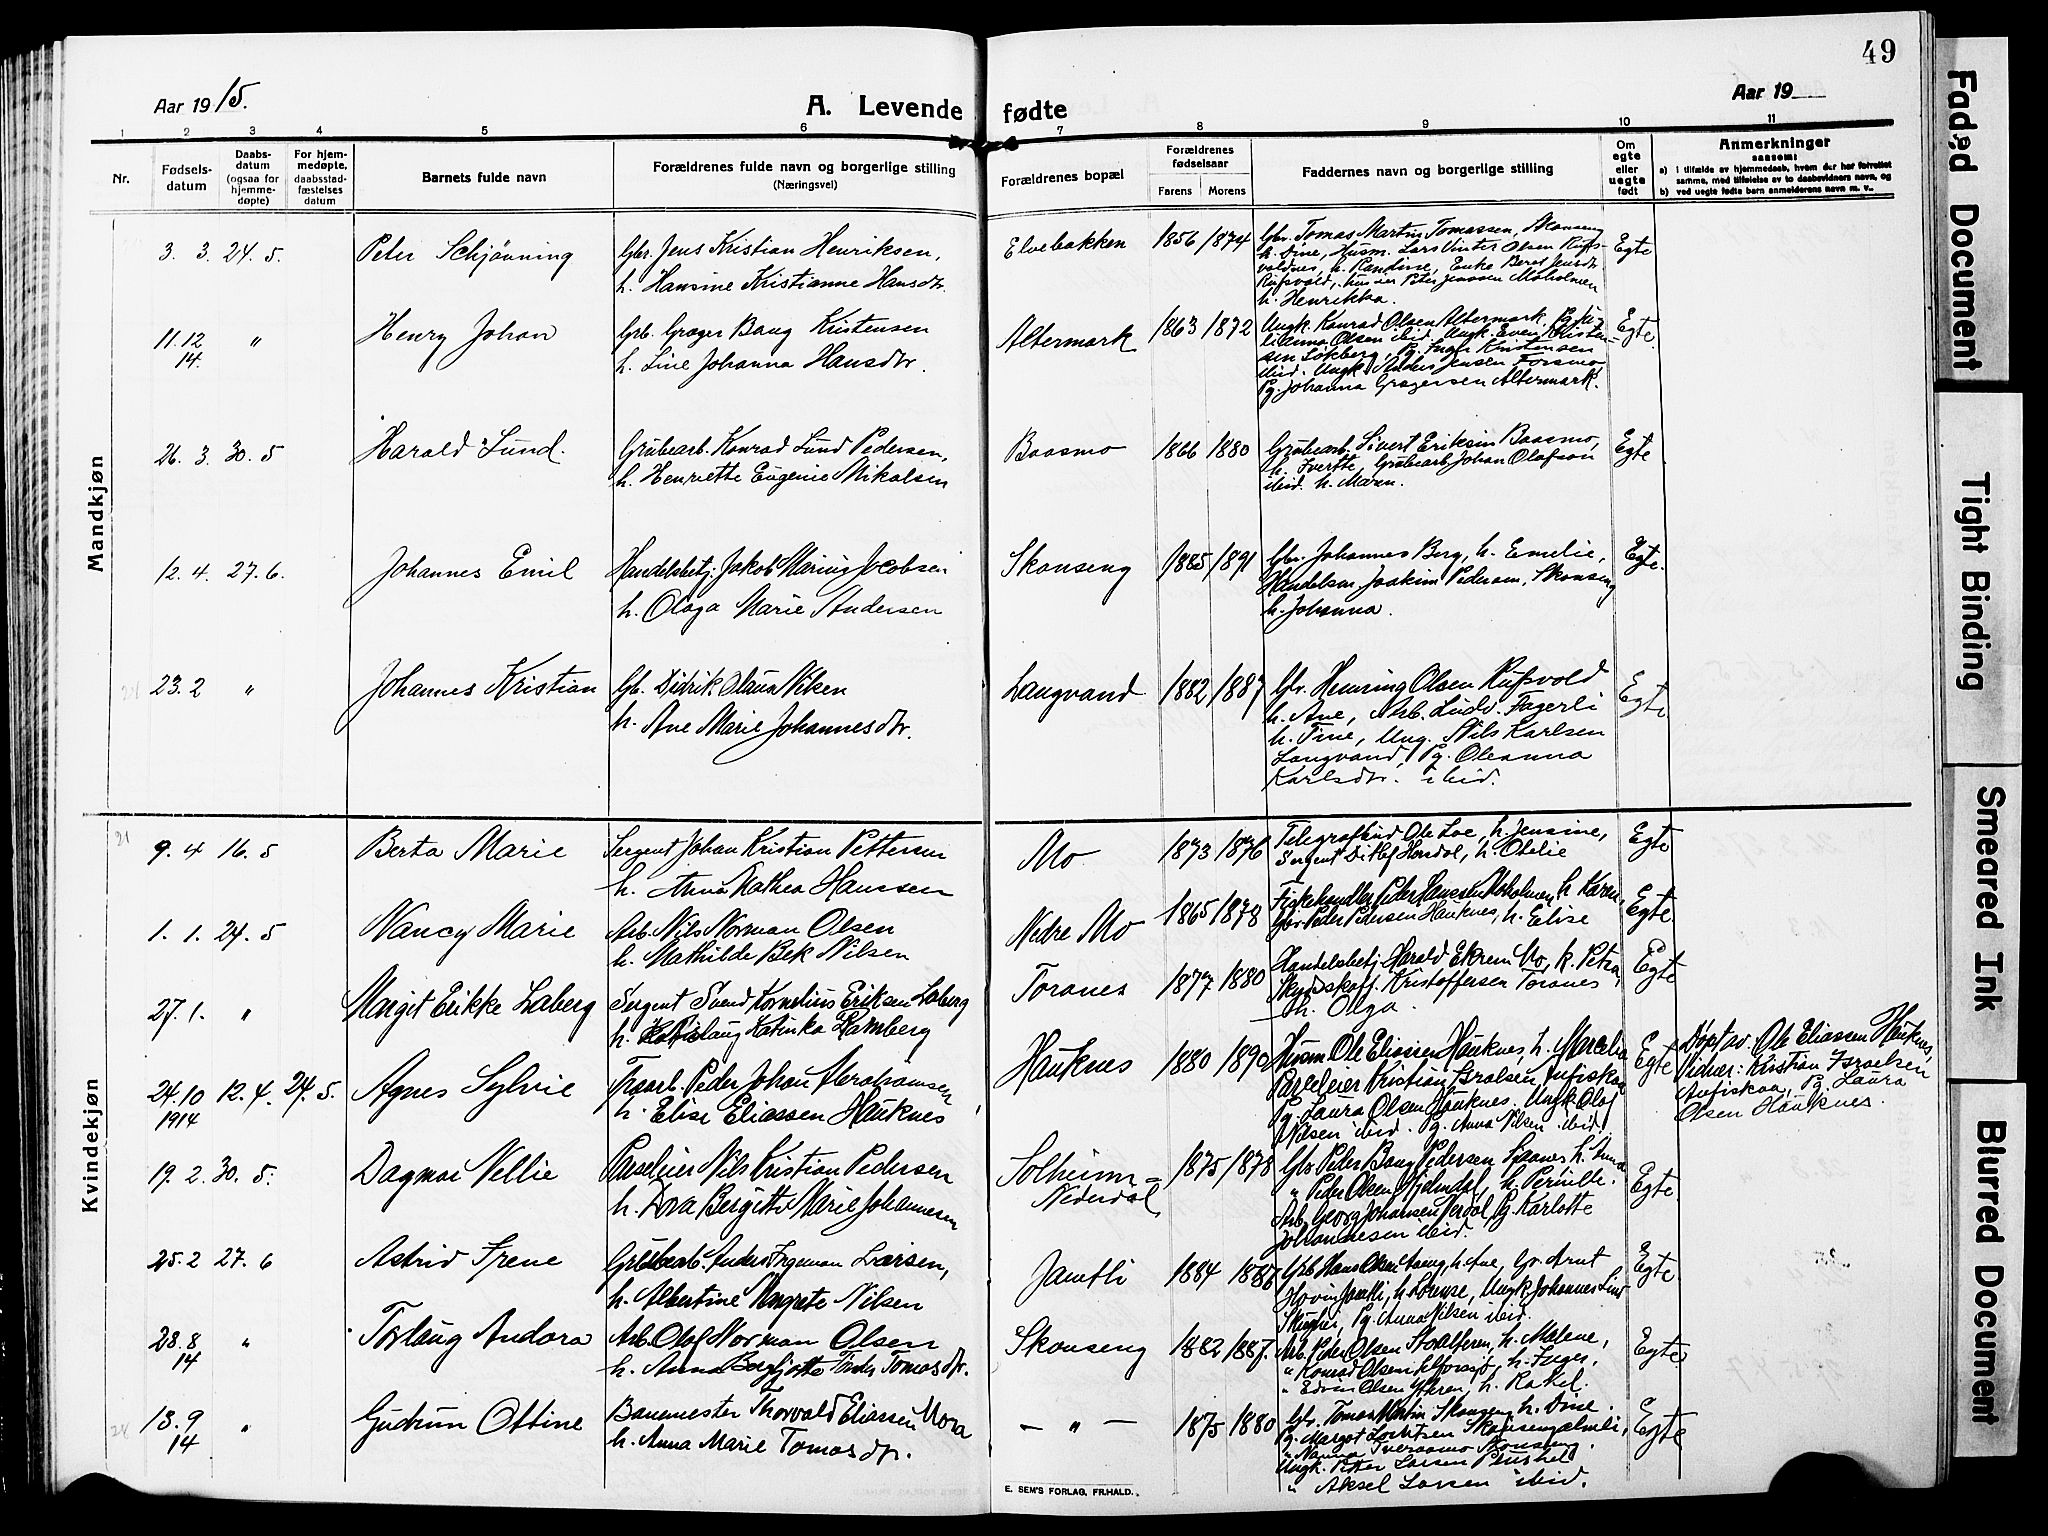 49
Aar 1915.
A. Levende fødte
Aar 19
1 2 3 4 5 6 7 8 9 10 11
Nr.
Fødsels-
datum
Daabs-
datum
(ogsaa for
hjemme-
døpte)
For hjem-
medøpte,
daabsstad-
fæstelses
datum
Barnets fulde navn
Forældrenes fulde navn og borgerlige stilling
(Næringsvei)
Forældrenes bopæl
Forældrenes
fødselsaar
Farens Morens
Faddernes navn og borgerlige stilling
Om
egte
eller
uegte
født
Anmerkninger
saasom:
a) i tilfælde av hjemmedaab, hvem der har forrettet
samme, med tilføielse av to daabsvidners navn, og
b) ved uegte fødte barn anmelderens navn m. v.
Mandkjøn
3. 3. 24. 5. Peter Schjønning
Gbr. Jens Kristian Henriksen,
h. Hansine Kristianne Hansdtr.
Elvebakken 1856 1874
Gbr. Tomas Martin Tomassen, Skonseng
h. Dine, Husm. Lars Vinter Olsen
h. Randine, Enke Beret Jensdtr.
h. Henrikka.
Egte
11. 12 14. " Henry Johan
Grb. Grøger Bang Kristensen
h. Line Johanna Hansdtr.
Altermark 1863 1872
Ungk. Konrad Olsen Altermark
Anna Olsen ibid. Ungk. Even Kristen-
sen Løkberg, Pg. Kristensen
ibid. Ungk. Jensen Forsmo
Pg. Johanna Grøgersen Altermark.
Egte.
26. 3. 30. 5 Harald Lund.
Grubearb. Konrad Lund Pedersen,
h. Henriette Eugenie Nikolsen
Baasmo 1866 1880
Grubearb. Sivert Eriksen Baasmo,
h. Ivertte, Grubearb. Johan Olafson
ibid. h. Maren.
Egte
12. 4. 27. 6. Johannes Emil
Handelsbetj. Jakob Maring Jacobsen
h. Olaga Marie Andersen
Skonseng 1885 1891
Gbr. Johannes Berg, h. Emelie,
Handelsm. Joakim Pedersen, Skonseng
h. Johanna.
Egte.
23. 2 " Johannes Kristian
Gb. Didrik Olaus Viken
h. Ane Marie Johannesdtr.
Langvand 1882 1887
Gbr. Henning Olsen Rufsvold
h. Ane, Arb. Ludv. Fagerli
h. Tine, Ung. Nils Karlsen
Langvand, Pg. Oleanna
Karlsdtr. ibid.
Egte
Kvindekjøn
21
9. 4 16. 5 Berta Marie
Sergent Johan Kristian Pettersen
h. Anna Kathea Hanssen
Mo 1873 1876
Telegrafbud Ole Loe, h. Jensine,
Sergent Ditlef Hordal, h. Otelie
Egte
1. 1. 24. 5 Nancy Marie
Arb. Nils Norman Olsen
h. Mathilde Bek Nilsen
Nedre Mo 1865 1878
Fiskehandler Peder Hansen Moholmen h. Karen,
Gbr. Peder Pedersen Hauknes, h. Elise
Egte
27. 1. " Margit Erikke Laberg
Sergent Svend Kornelius Eriksen Laberg
h. Katinka Ramberg
Toranes 1877 1880
Handelsbetj. Harald Ekrem Mo, h. Petra
Skydsskaff. Kristoffersen Toranes,
h. Olga.
Egte
24. 10 1914 12. 4. 24. 5. Agnes Sylvie
Peder Johan Abrahamsen
h. Elise Eliassen Hauknes
Hauknes 1880 1890
Husm. Ole Eliassen Hauknes, h. Marelia
Parseleier Kristian Israelsen, Aufiskaa
Pg. Laura Olsen Hauknes. Ungk. Olaf
Nilsen ibid. Pg. Anna Nilsen ibid.
Egte
Døpt av. Ole Eliassen Hauknes,
Vidner: Kristian Israelsen
Aufiskaa, Pg. Laura
Olsen Hauknes.
19. 2. 30. 5. Dagmar Nellie
Parseleier Nils Kristian Pedersen
h. Ova Bergitte Marie Johannesen
Solheim =
Nederdal 1875 1878
Gbr. Peder Bang Pedersen h.
" Peder Olsen h. Pernille.
Arb. Georg Johansen Pg. Karlotte
Johannesen ibid.
Egte
25. 2 27. 6 Astrid Irene
Grubearb. Anders Ingeman Larsen,
h. Albertine Margrete Nilsen
Jamtli 1884 1886
Grb Hans Olsen h. Ane, Gr. Arnt
Hovin Jamtli, h. Lorense, Ungk. Johannes Lind
Pg. Anna Nilsen ibid.
Egte
28. 8 14 " Torlaug Andora
Arb. Olaf Norman Olsen
h. Anna Tomasdtr.
Skonseng 1882 1887.
Arb. Peder Olsen h. Malene,
" Konrad Olsen h. Inger,
" Edvin Olsen Ytteren, h. Rakel.
Egte
13. 9 14 " Gudrun Ottine
Banemester Thorvald Eliassen Mora
h. Anna Marie Tomasdtr.
— " — 1875 1880
Gbr. Tomas Martin Skonseng h. Dine.
Pg. Margot Loritzen
" Nanna Tveraamo Skonseng.
Ungk. Peter Larsen Plushei
" Aksel Larsen ibid.
Egte
E. SEM'S FORLAG, FR.HALD.
Faded Document
Tight Binding
Smeared Ink
Blurred Document